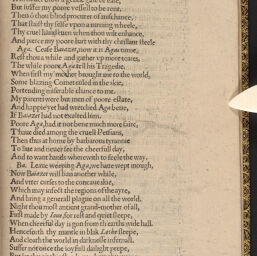 But suffer my poore vessell to be rent.
Then ô thou blind procurer of mischance,
That staist thy selfe vpon a turning wheele,
Thy cruell hand euen when thou wilt enhance,
And pierce my poore hart with thy thrillant steele
Aga. Cease Baiazet, now it is Agas turne,
Rest thou a while and gather vp more teares,
The while poore Aga tell his Tragedie.
When first my mother brought me to the world,
Some blazing Comet ruled in the skie,
Portending miserable chance to me.
My parents were but men of poore estate,
And happie yet had wretched Aga beene,
If Baiazet had not exalted him.
Poore Aga, had it not bene much more faire,
T'haue died among the cruell Persians,
Then thus at home by barbarous tyrannie
To liue and neuer see the cheerfull day,
And to want hands wherewith to feele the way.
Ba. Leaue weeping Aga, we haue wept inough,
Now Baiazet will ban another while,
And vtter curses to the concaue skie,
Which may infect the regions of the ayre,
And bring a generall plague on all the world.
Night thou most antient grand-mother of all,
First made by Ioue, for rest and quiet sleepe,
When cheerful day is gon from th'earths wide hall.
Henceforth thy mantle in blak Lethe steepe,
And cloath the world in darknesse infernall.
Suffer not once the ioyfull daylight peepe,